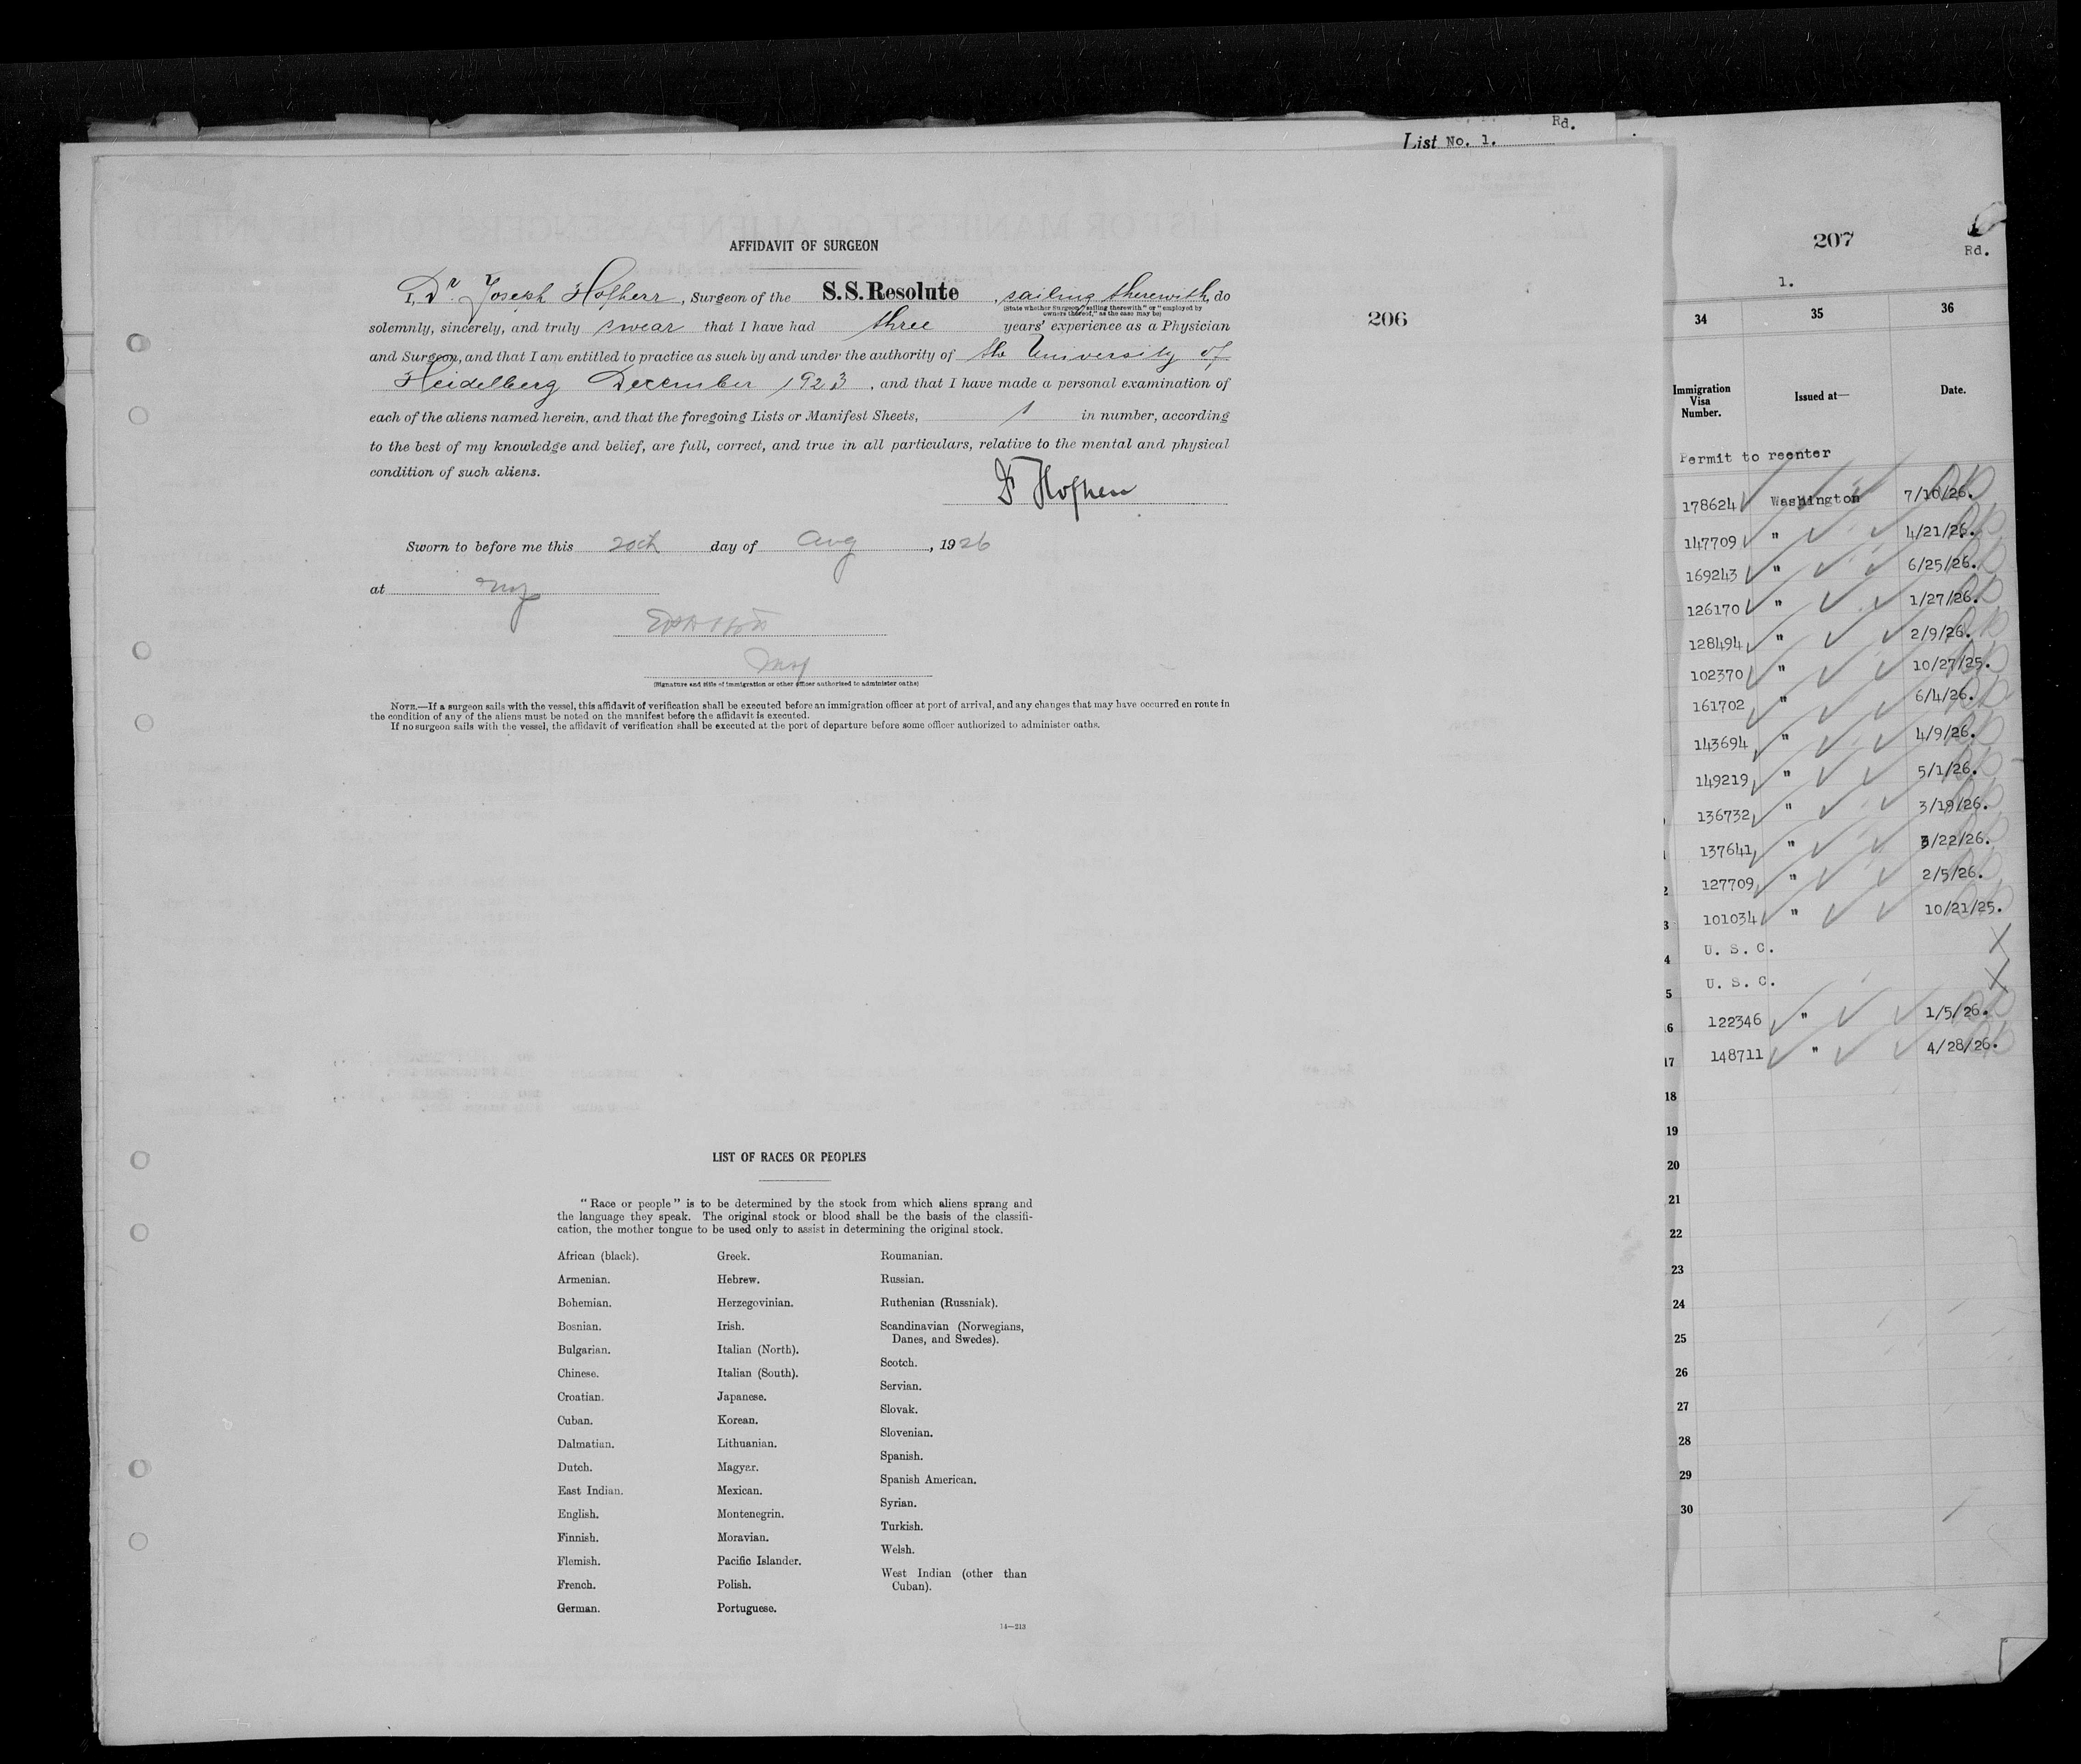 Rd.
List No. 1.
AFFIDAVIT OF SURGEON
I, Dr. Joseph Hofherr, Surgeon of the S.S. Resolute, sailing therewith, do
(State whether Surgeon "sailing therewith" or "employed by
owners thereof," as the case may be)
solemnly, sincerely, and truly swear that I have had three years' experience as a Physician
and Surgeon, and that I am entitled to practice as such by and under the authority of the University of
Heidelberg December 1923, and that I have made a personal examination of
each of the aliens named herein, and that the foregoing Lists or Manifest Sheets, 1 in number, according
to the best of my knowledge and belief, are full, correct, and true in all particulars, relative to the mental and physical
condition of such aliens.
Hofherr
Sworn to before me this 20th day of Aug, 1926
at NY
(Signature and title of immigration or other officer authorized to administer oaths)
NOTE.—If a surgeon sails with the vessel, this affidavit of verification shall be executed before an immigration officer at port of arrival, and any changes that may have occurred en route in
the condition of any of the aliens must be noted on the manifest before the affidavit is executed.
If no surgeon sails with the vessel, the affidavit of verification shall be executed at the port of departure before some officer authorized to administer oaths.
206
LIST OF RACES OR PEOPLES
"Race or people" is to be determined by the stock from which aliens sprang and
the language they speak. The original stock or blood shall be the basis of the classifi-
cation, the mother tongue to be used only to assist in determining the original stock.
African (black).
Armenian.
Bohemian.
Bosnian.
Bulgarian.
Chinese.
Croatian.
Cuban.
Dalmatian.
Dutch.
East Indian.
English.
Finnish.
Flemish.
French.
German.
Greek.
Hebrew.
Herzegovinian.
Irish.
Italian (North).
Italian (South).
Japanese.
Korean.
Lithuanian.
Magyar.
Mexican.
Montenegrin.
Moravian.
Pacific Islander.
Polish.
Portuguese.
Roumanian.
Russian.
Ruthenian (Russniak).
Scandinavian (Norwegians,
Danes, and Swedes).
Scotch.
Servian.
Slovak.
Slovenian.
Spanish.
Spanish American.
Syrian.
Turkish.
Welsh.
West Indian (other than
Cuban).
14—213
207
Rd.
1.
34 35 36
Immigration
Visa
Number.
Issued at—
Date.
Permit to reenter
178624 Washington 7/10/26.
147709 " 4/21/26.
169243 " 6/25/26.
126170 " 1/27/26.
128494 " 2/9/26.
102370 " 10/27/25.
161702 " 6/4/26.
143694 " 4/9/26.
149219 " 5/1/26.
136732 " 3/19/26.
137641 " 3/22/26.
2 127709 " 2/5/26.
3 101034 " 10/21/25.
4 U. S. C. X
5 U. S. C. X
6 122346 " 1/5/26.
17 148711 " 4/28/26.
18
19
20
21
22
23
24
25
26
27
28
29
30